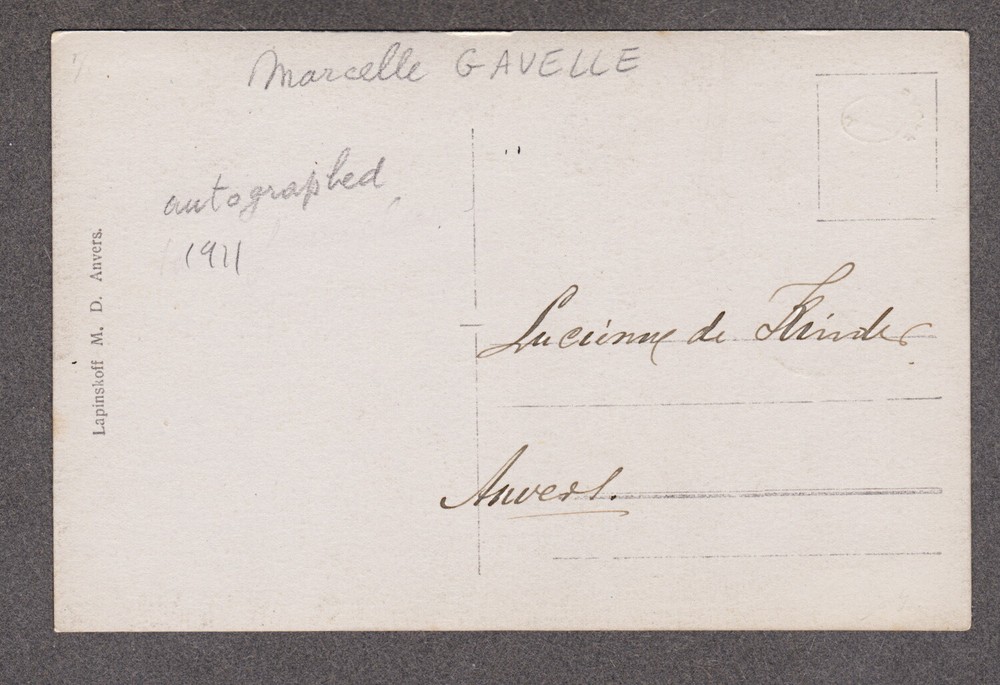 Marcelle GAVELLE
autographed
1911
Lapinskoff M. D. Anvers.
Lucienne de Kinder
Anvers.